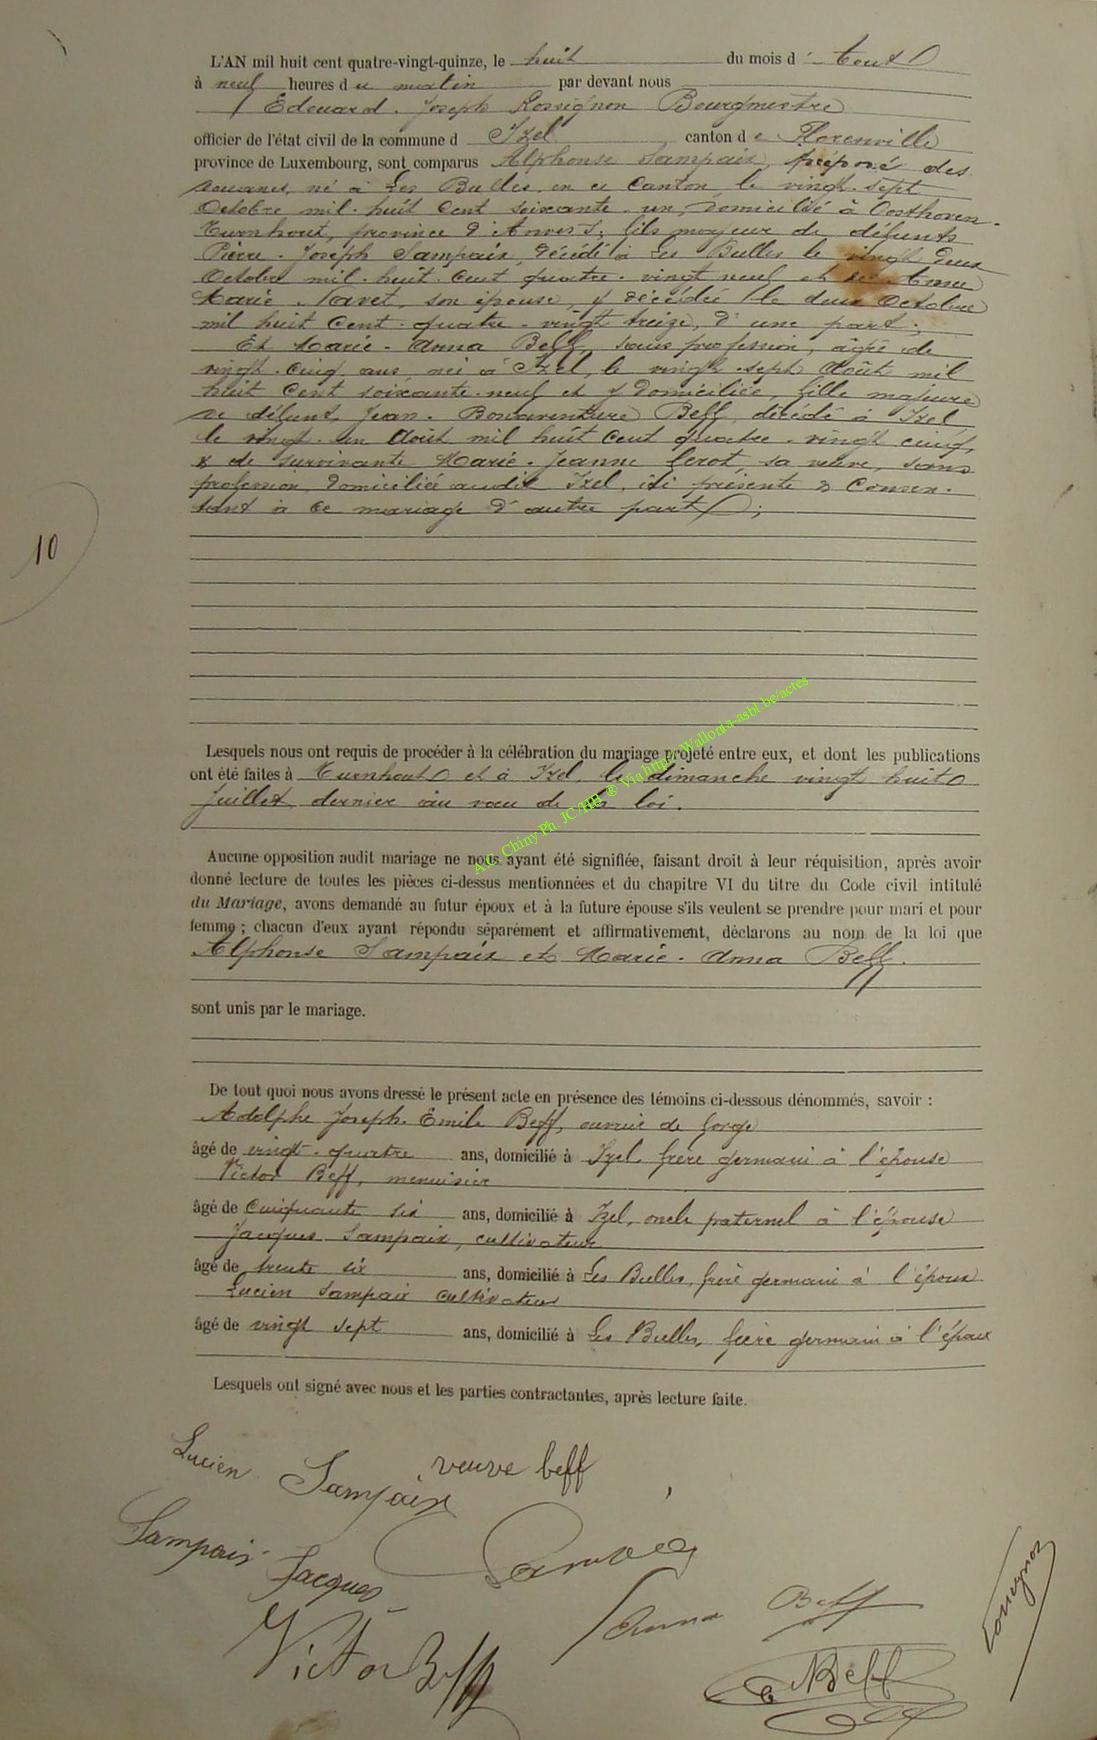 L'AN mil huit cent quatre-vingt-quinze, le huit du mois d'Aout
à neuf heures du matin par devant nous
Edouard. Joseph Rossignon Bourgmestre
officier de l'état civil de la commune d Izel canton de Florenville
province de Luxembourg, sont comparus Alphonse Sampaix, préposé des
douanes, né à Les Bulles, en ce Canton, le vingt. sept
Octobre mil. huit Cent soixante. un, domicilié à Oosthoven-
Turnhout, province d'Anvers; fils majeur de défunts
Pierre. Joseph Sampaix, décédé à Les Bulles le vingt deux
Octobre mil. huit. Cent quatre. vingt neuf et de
Marie. Navet, son épouse, y décédée le deux Octobre
mil huit Cent. quatre. vingt treize, d'une part;
Et Marie. Anna Beff, sans profession, âgée de
vingt. cinq ans née à Izel, le vingt. sept Août mil
huit Cent soixante. neuf et y domiciliée, fille majeure
de défunt Jean. Bonaventure Beff, décédé à Izel
le vingt. un Août mil huit Cent quatre. vingt cinq,
& de survivante Marie. Jeanne sa veuve, sans
profession, domiciliée audit Izel, ici présente & Consen.
tant à ce mariage d'autre part;
10
Lesquels nous ont requis de procéder à la célébration du mariage projeté entre eux, et dont les publications
ont été faites à Turnhout et à Izel, le dimanche vingt huit
Juillet dernier au vœu de la loi.
A.C. Chiny Ph. JC/HB ® Via http://Wallonia-asbl.be/actes
Aucune opposition audit mariage ne nous ayant été signifiée, faisant droit à leur réquisition, après avoir
donné lecture de toutes les pièces ci-dessus mentionnées et du chapitre VI du titre du Code civil intitulé
du Mariage, avons demandé au futur époux et à la future épouse s'ils veulent se prendre pour mari et pour
femme; chacun d'eux ayant répondu séparément et affirmativement, déclarons au nom de la loi que
Alphonse Sampaix et Marie. Anna Beff.
sont unis par le mariage.
De tout quoi nous avons dressé le présent acte en présence des témoins ci-dessous dénommés, savoir :
Adolphe Joseph. Emile Beff, ouvrier de forge
âgé de vingt. quatre ans, domicilié à Izel, frère germain à l'épouse
Victor Beff, menuisier
âgé de Cinquante six ans, domicilié à Izel, oncle paternel à l'épouse
Jacques Sampaix, cultivateur
âgé de trente six ans, domicilié à Les Bulles, frère germain à l'époux
Lucien Sampaix cultivateur
âgé de vingt sept ans, domicilié à Les Bulles, frère germain à l'époux
Lesquels ont signé avec nous et les parties contractantes, après lecture faite.
Lucien Sampaix veuve beff
Sampaix Jacques Sampaix
Victor Beff Anna Beff Rossignon
Beff